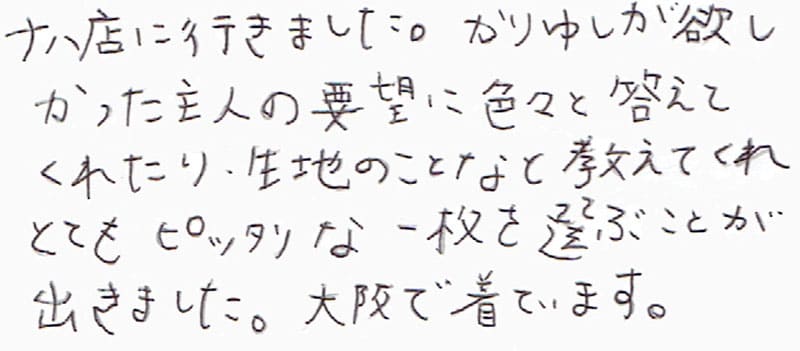 ナハ店に行きました。かりゆしが欲し
かった主人の要望に色々と答えて
くれたり、生地のことなど教えてくれ
とてもピッタリな一枚を選ぶことが
出きました。大阪で着ています。